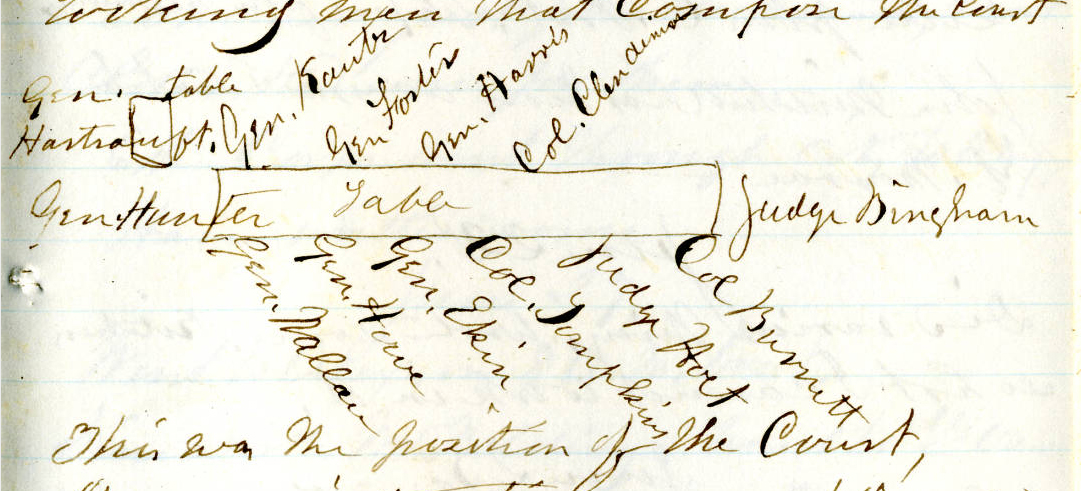 looking men that compose the Court
Gen. Hartranft.
table
Gen. Kautz
Gen Foster
Gen. Harris
Col. Clendinin
Gen. Hunter
Table
Judge Bingham
Gen. Wallace
Gen. Howe
Gen. Ekin
Col. Tompkins
Judge Holt
Col Burnett
This was the position of the Court,